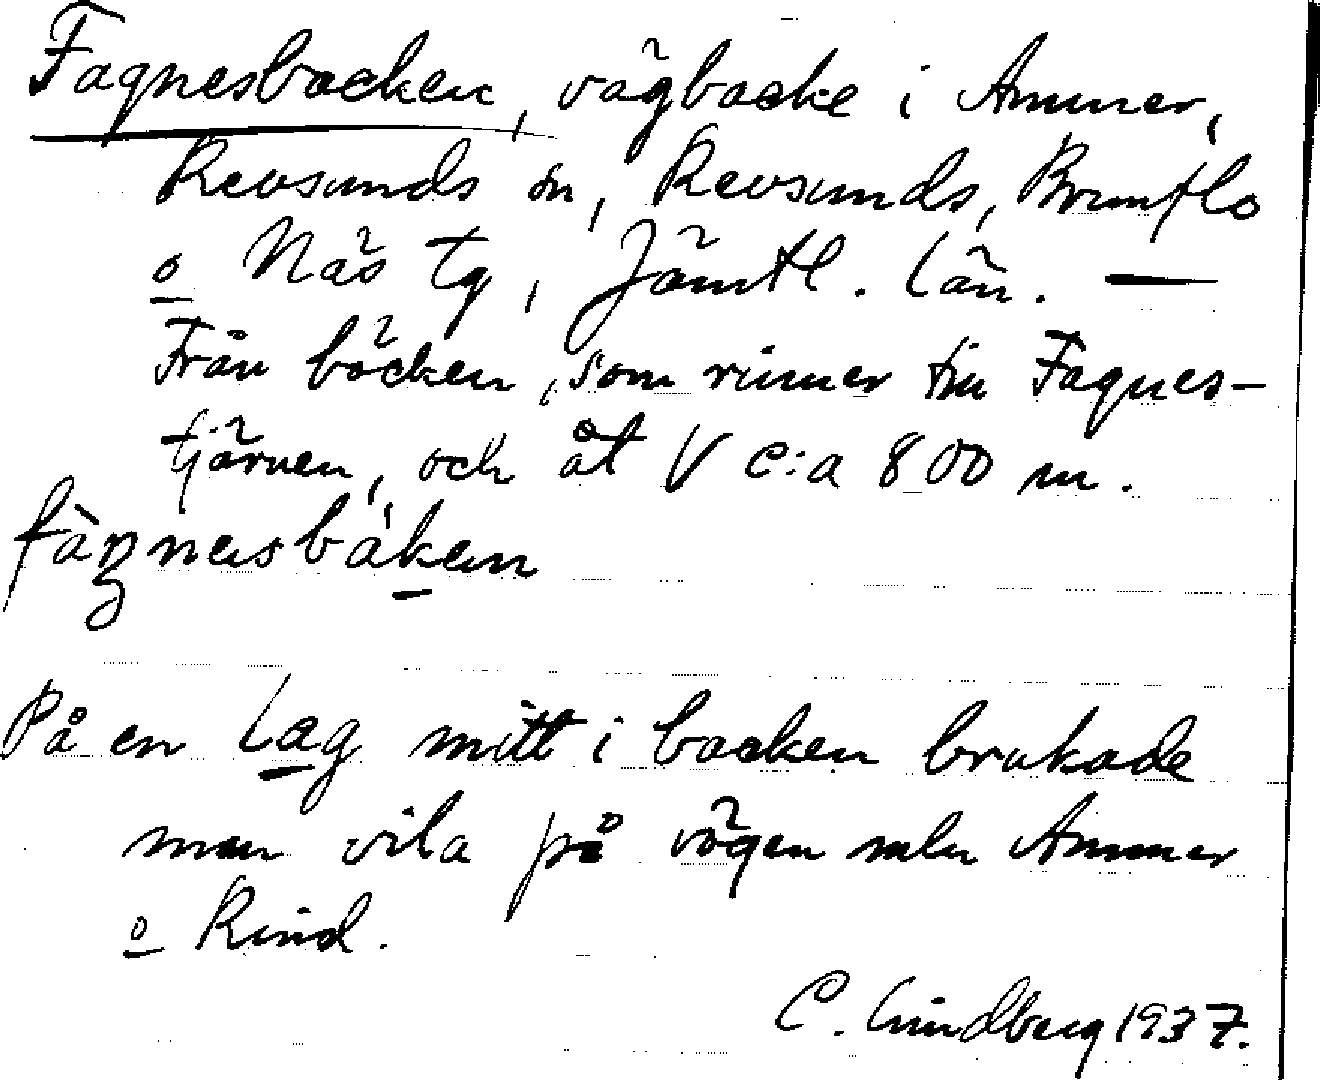 Fagnesbacken, vägbacke i Ammer,
Revsunds sn, Revsunds, Brunflo
o Näs tg, Jämtl. län. —
Från bäcken, som rinner till Fagnes-
tjärnen, och åt V c:a 800 m.
fàŋnasbákan
På en lag mitt i backen brukade
man vila på vägen mln Ammer
o Rind.
C. Lindberg 1937.